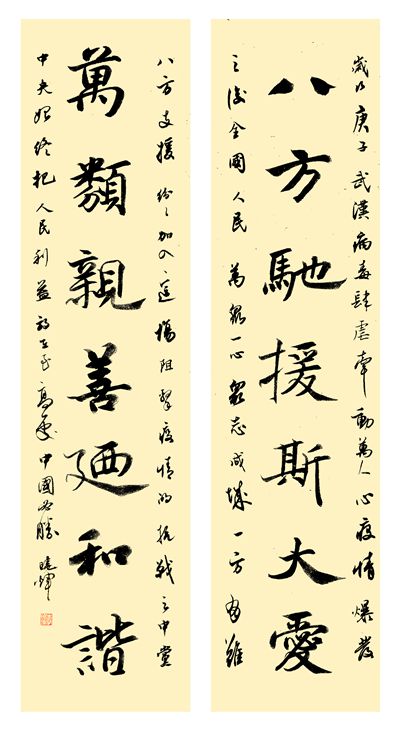 歲次庚子武漢病毒肆虐牽動萬人心疫情爆發
八方馳援斯大愛
之後全國人民萬眾一心眾志成城一方有難
八方支援紛紛加入這場阻擊疫情的抗戰之中黨
萬類親善廼和諧
中央始終把人民利益放在高處中國必勝